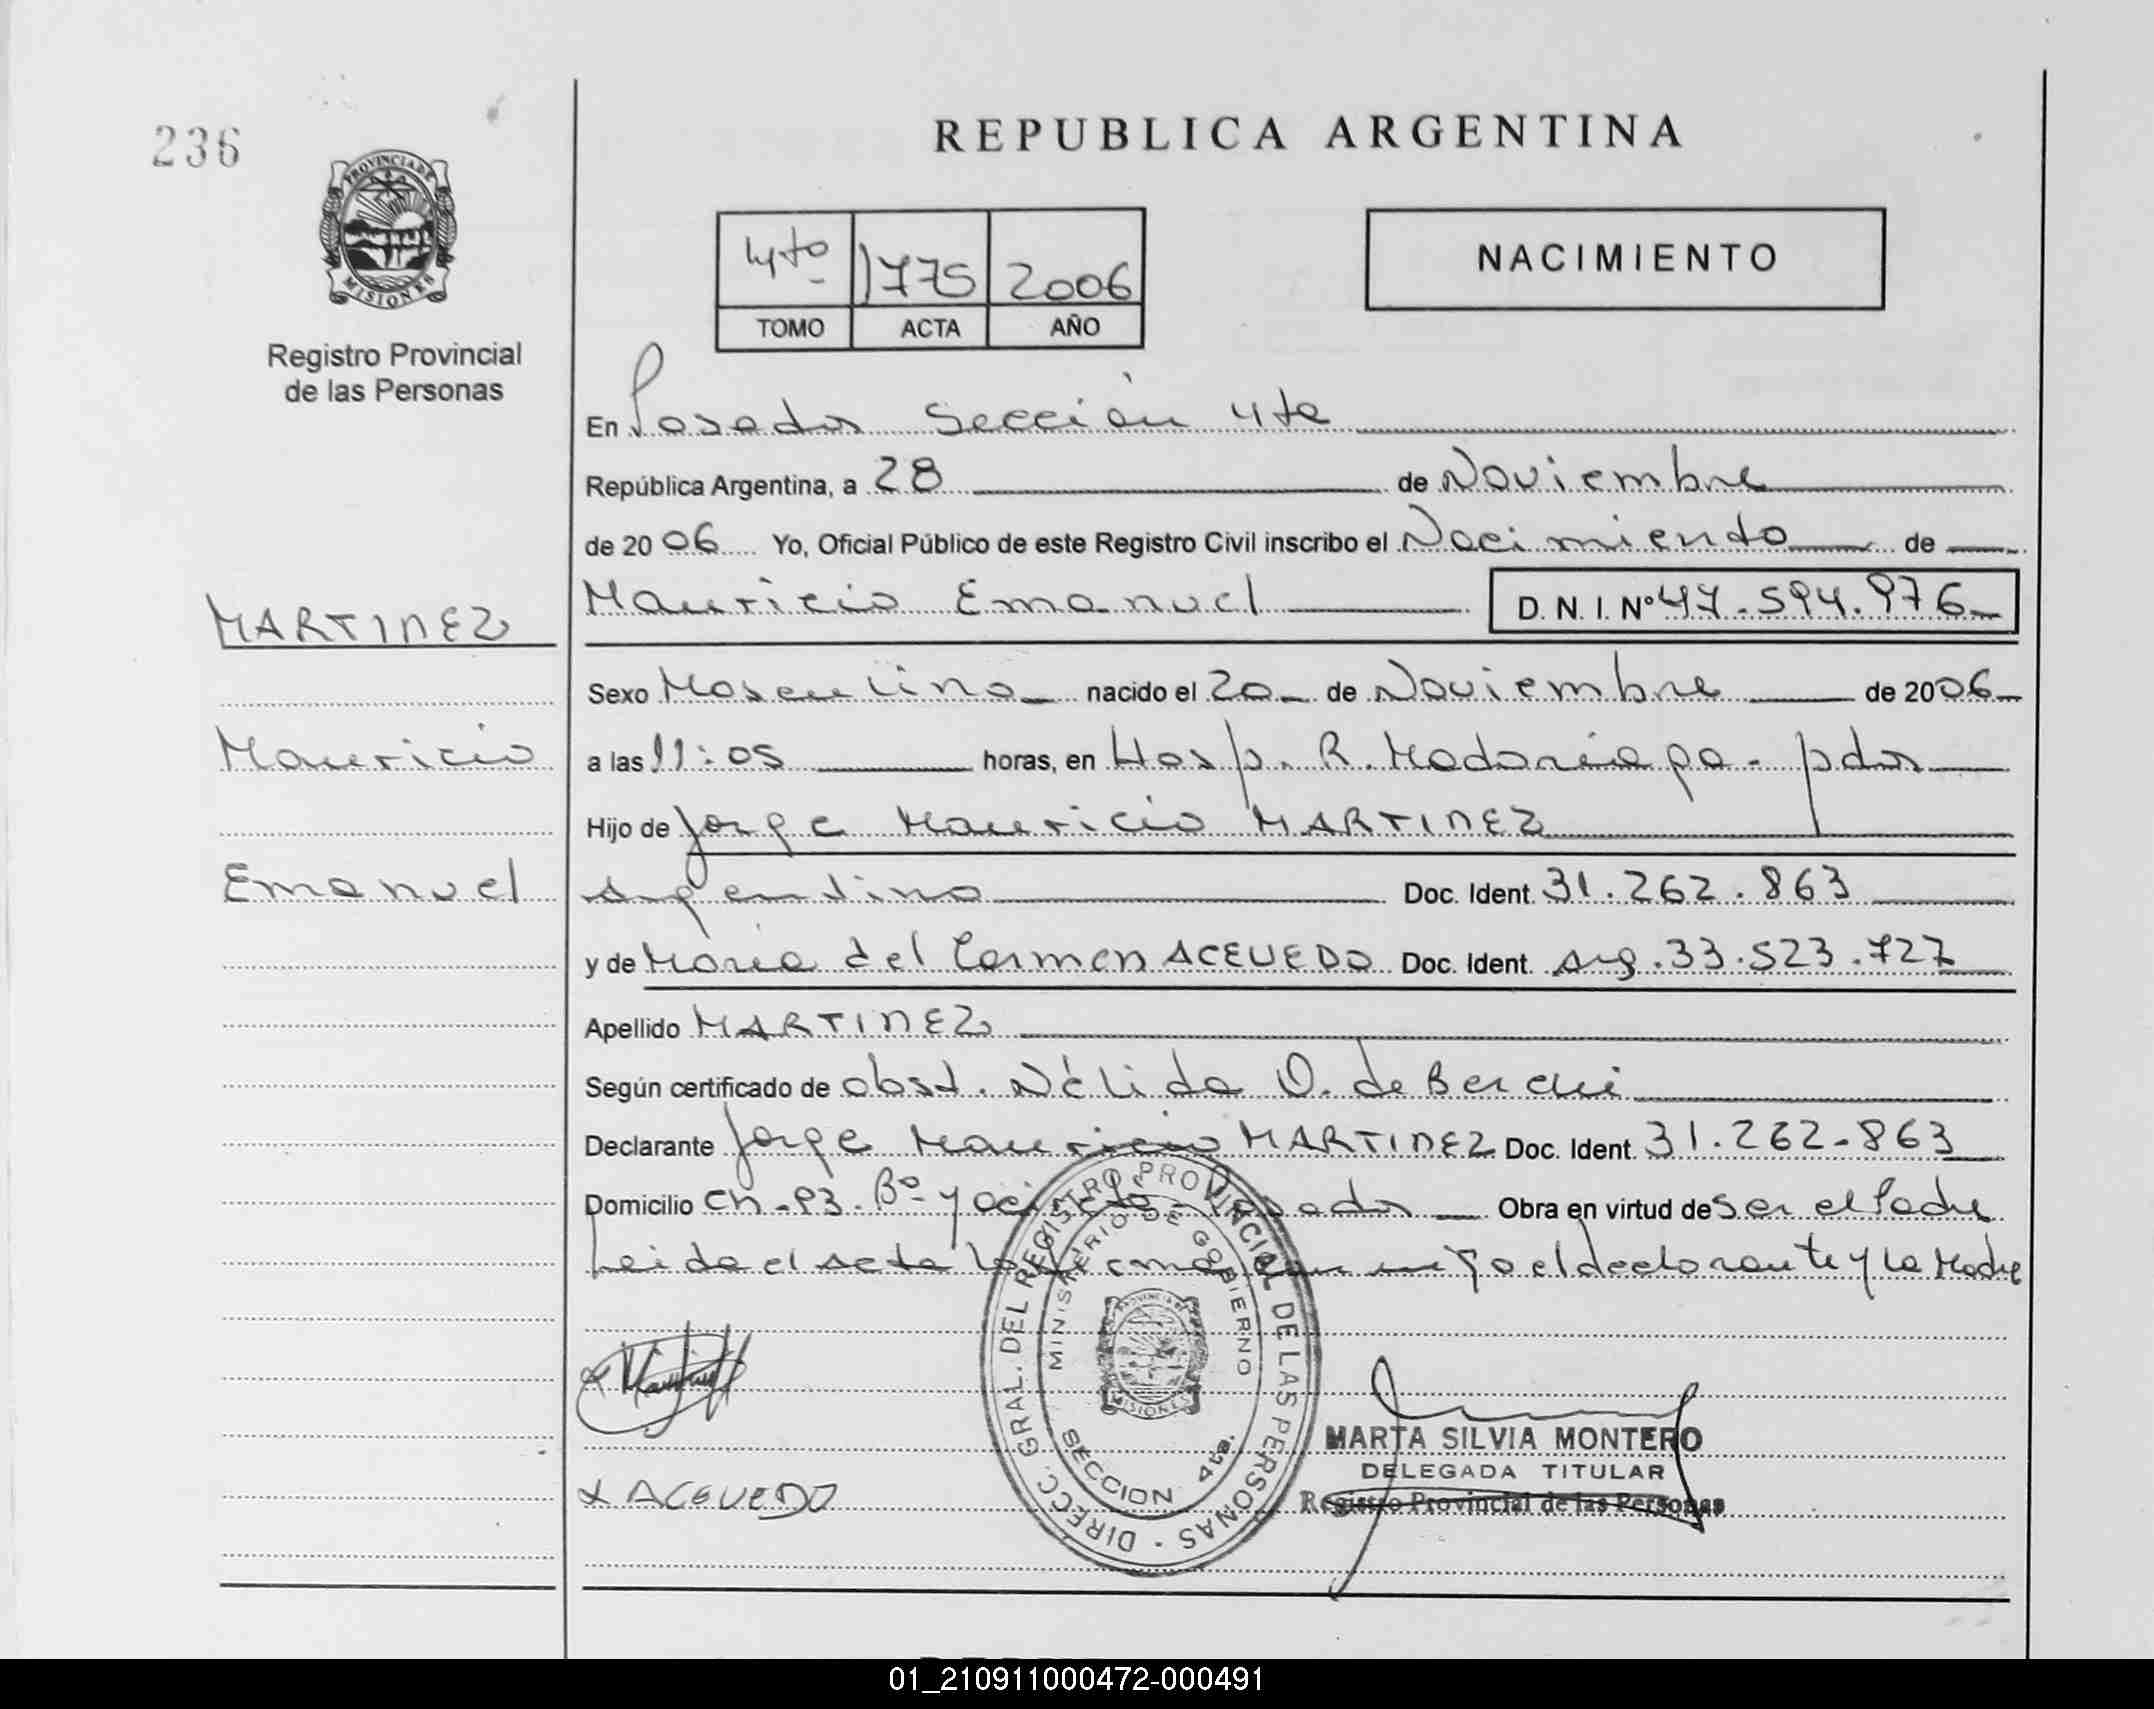 236
PROVINCIA DE
MISIONES
Registro Provincial
de las Personas
REPUBLICA ARGENTINA
4to 1775 2006
TOMO ACTA AÑO
NACIMIENTO
En Posadas Sección 4ta
República Argentina, a 28 de Noviembre
de 2006 Yo, Oficial Público de este Registro Civil inscribo el Nacimiento de
Mauricio Emanuel D. N. I. Nº 47.594.976
MARTINEZ
Sexo Masculino nacido el 20 de Noviembre de 2006
Mauricio
a las 11:05 horas, en Hosp. R. Madariaga - pdas
Hijo de Jorge Mauricio MARTINEZ
Emanuel
Argentino Doc. Ident. 31.262.863
y de María del Carmen ACEVEDO Doc. Ident. Arg. 33.523.727
Apellido MARTINEZ
Según certificado de obst. Nélida O. de
Declarante Jorge Mauricio MARTINEZ Doc. Ident. 31.262.863
Domicilio Ch. 93. Bº Yacireta - Posadas Obra en virtud de ser el Padre
Leida el acta la firman conmigo el declarante y la Madre
DIRECC. GRAL. DEL REGISTRO PROVINCIAL DE LAS PERSONAS
MINISTERIO DE GOBIERNO
PROVINCIA DE
MISIONES
SECCION 4ta.
X ACEVEDO
MARTA SILVIA MONTERO
DELEGADA TITULAR
Registro Provincial de las Personas
01_210911000472-000491